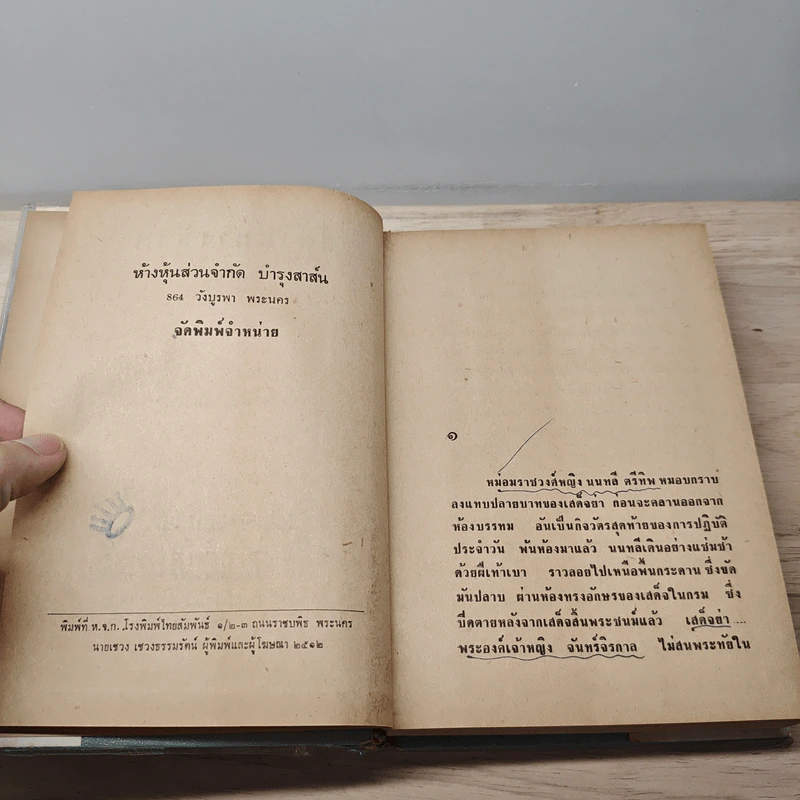 ห้างหุ้นส่วนจำกัด บำรุงสาส์น
864 วังบูรพา พระนคร
จัดพิมพ์จำหน่าย
พิมพ์ที่ ห.จ.ก. โรงพิมพ์ไทยสัมพันธ์ ๑/๒-๓ ถนนราชบพิธ พระนคร
นายเชวง เชวงธรรมรัตน์ ผู้พิมพ์และผู้โฆษณา ๒๕๑๒
๑
หม่อมราชวงศ์หญิง นนทลี ตรีทิพ หมอบกราบ
ลงแทบปลายบาทของเสด็จย่า ก่อนจะคลานออกจาก
ห้องบรรทม อันเป็นกิจวัตรสุดท้ายของการปฏิบัติ
ประจำวัน พ้นห้องมาแล้ว นนทลีเดินอย่างแช่มช้า
ด้วยฝีเท้าเบา ราวลอยไปเหนือพื้นกระดาน ซึ่งขัด
มันปลาบ ผ่านห้องทรงอักษรของเสด็จในกรม ซึ่ง
ปิดตายหลังจากเสด็จสิ้นพระชนม์แล้ว เสด็จย่า ...
พระองค์เจ้าหญิง จันทร์จิรกาล ไม่สนพระทัยใน